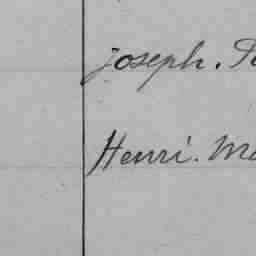 Joseph.
Henri.